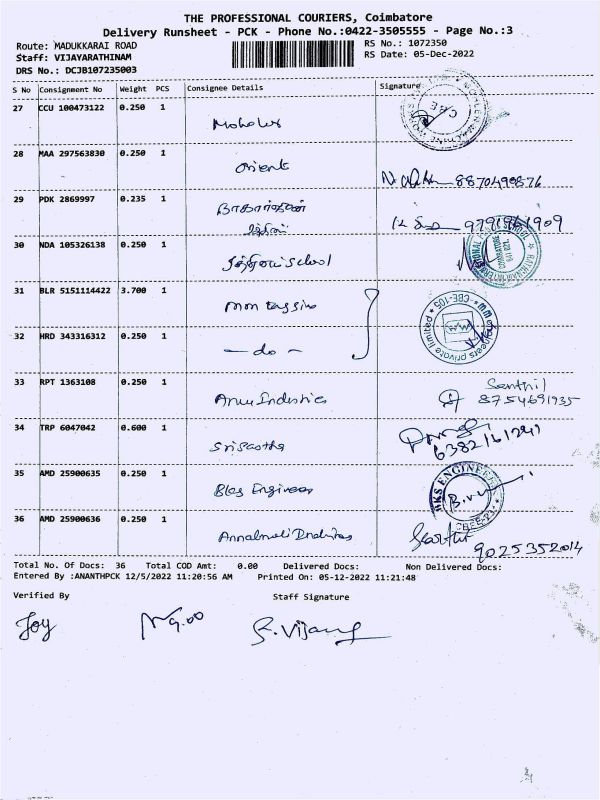 THE PROFESSIONAL COURIERS, Coimbatore
Delivery Runsheet - PCK - Phone No.:0422-3505555 - Page No.:3
Route: MADUKKARAI ROAD
RS No.: 1072350
Staff: VIJAYARATHINAM
RS Date: 05-Dec-2022
DRS No.: DCJB107235003
S No Consignment No Weight PCS Consignee Details Signature
27 CCU 100473122 0.250 1
CBE
28 MAA 297563830 0.250 1 Orient
8870498876
29 PDK 2869997 0.235 1
9791961909
30 NDA 105326138 0.250 1 School
31 BLR 5151114422 3.700 1
private limited * CBE-105 *
32 HRD 343316312 0.250 1 - do -
33 RPT 1363108 0.250 1 Industries Senthil
8754691935
34 TRP 6047042 0.600 1 Srisastha
6382161291
35 AMD 25900635 0.250 1 Bks Engineers
BKS ENGINEERS
36 AMD 25900636 0.250 1 Annamalai Industries
9025352014
Total No. Of Docs: 36 Total COD Amt: 0.00 Delivered Docs: Non Delivered Docs:
Entered By :ANANTHPCK 12/5/2022 11:20:56 AM Printed On: 05-12-2022 11:21:48
Verified By Staff Signature
Joy 9.00 S. Vijay